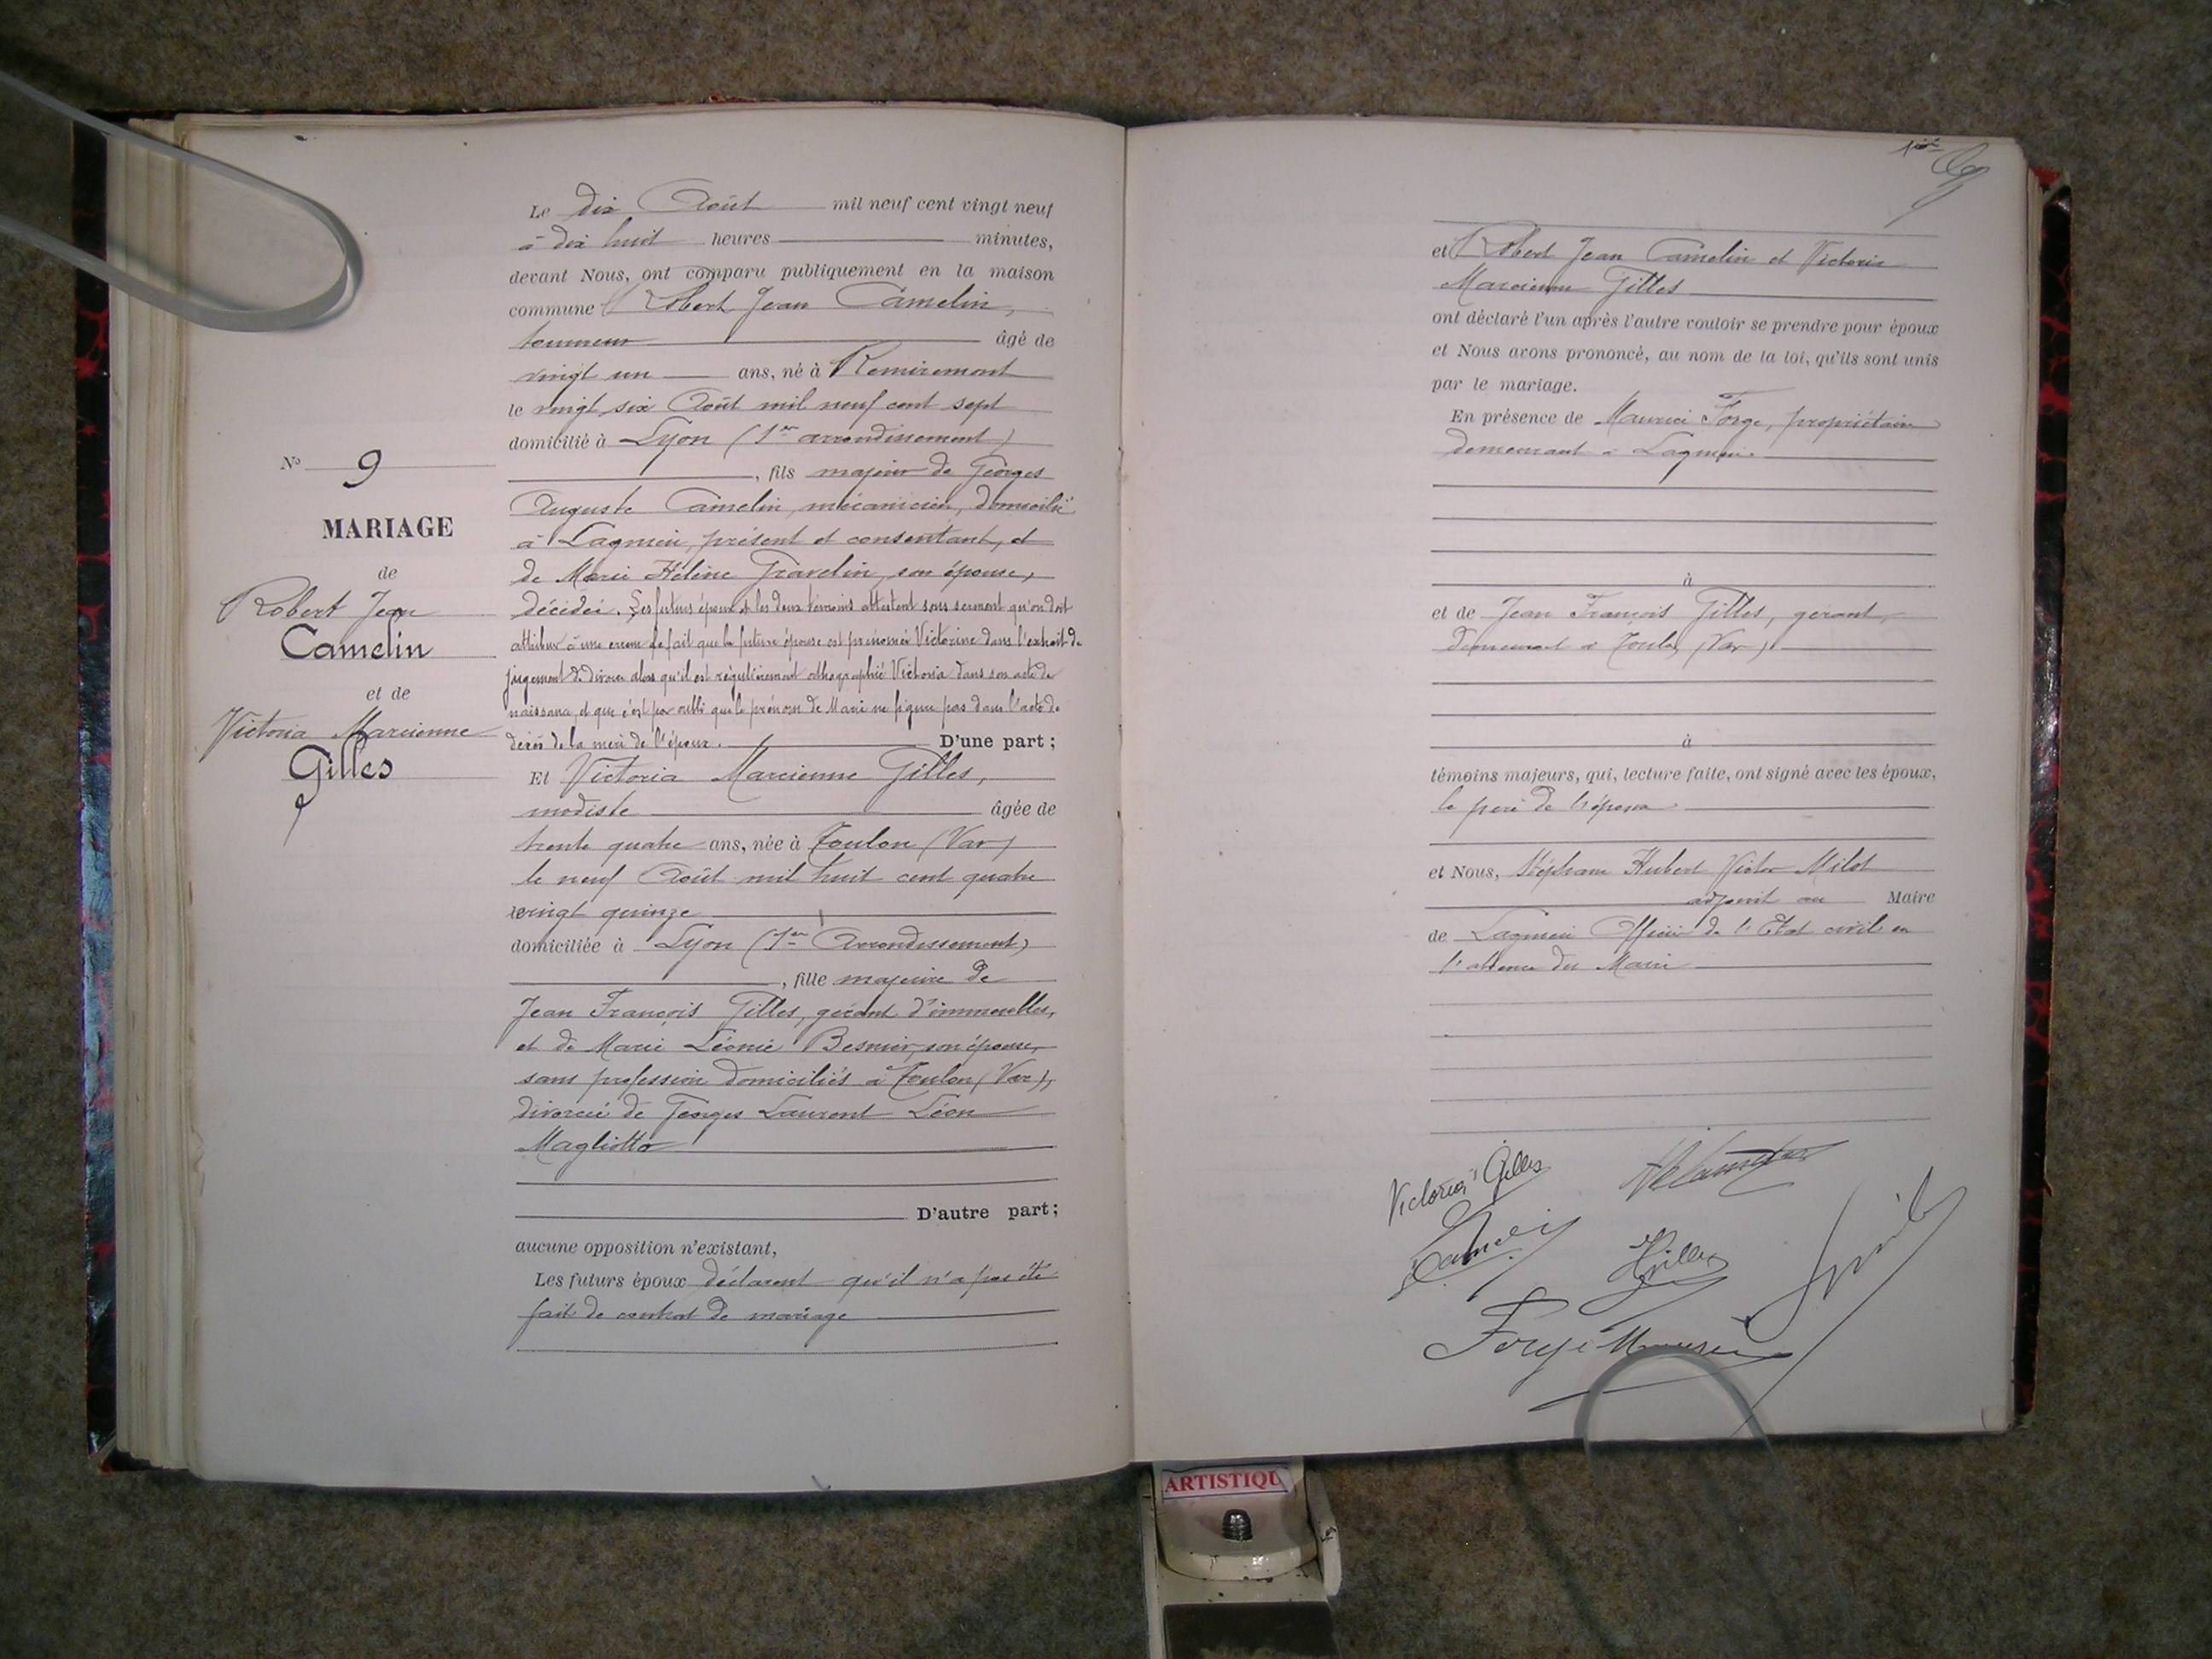 Le dix Août mil neuf cent vingt neuf
à dix huit heures minutes,
devant Nous, ont comparu publiquement en la maison
commune Robert Jean Camelin,
tourneur âgé de
vingt un ans, né à Remiremont
le vingt six Août mil neuf cent sept
domicilié à Lyon (1er arrondissement)
, fils majeur de Georges
Auguste Camelin, mécanicien, domicilié
à Lagnieu, présent et consentant, et
de Marie Hélène Gravelin, son épouse,
décédée. Les futurs époux et les deux témoins attestent sous serment qu'on doit
attribuer à une erreur le fait que la future épouse est prénomée Victorine dans l'extrait de
jugement de divorce alors qu'il est régulièrement orthographié Victoria dans son acte de
naissance, et que c'est par oubli que le prénom de Marie ne figure pas dans l'acte de
décès de la mère de l'époux. D'une part ;
Et Victoria Marcienne Gilles,
modiste âgée de
trente quatre ans, née à Toulon (Var)
le neuf Août mil huit cent quatre
vingt quinze
domiciliée à Lyon (1er Arrondissement)
, fille majeure de
Jean François Gilles, gérant d'immeubles,
et de Marie Léonie Besnier, son épouse,
sans profession domiciliés à Toulon (Var),
divorcée de Georges Laurent Léon
Magliotto
D'autre part ;
aucune opposition n'existant,
Les futurs époux déclarent qu'il n'a pas été
fait de contrat de mariage
No 9
MARIAGE
de
Robert Jean
Camelin
et de
Victoria Marcienne
Gilles
et Robert Jean Camelin et Victoria
Marcienne Gilles
ont déclaré l'un après l'autre vouloir se prendre pour époux
et Nous avons prononcé, au nom de la loi, qu'ils sont unis
par le mariage.
En présence de Maurice Forge, propriétaire
demeurant à Lagnieu
à
et de Jean François Gilles, gérant,
demeurant à Toulon (Var)
à
témoins majeurs, qui, lecture faite, ont signé avec les époux,
le père de l'époux
et Nous, Stéphane Hubert Victor Milot
adjoint au Maire
de Lagnieu Officier de l'Etat civil en
l'absence du Maire
Victoria Gilles
Camelin
Gilles
Forge Maurice
ARTISTIQU